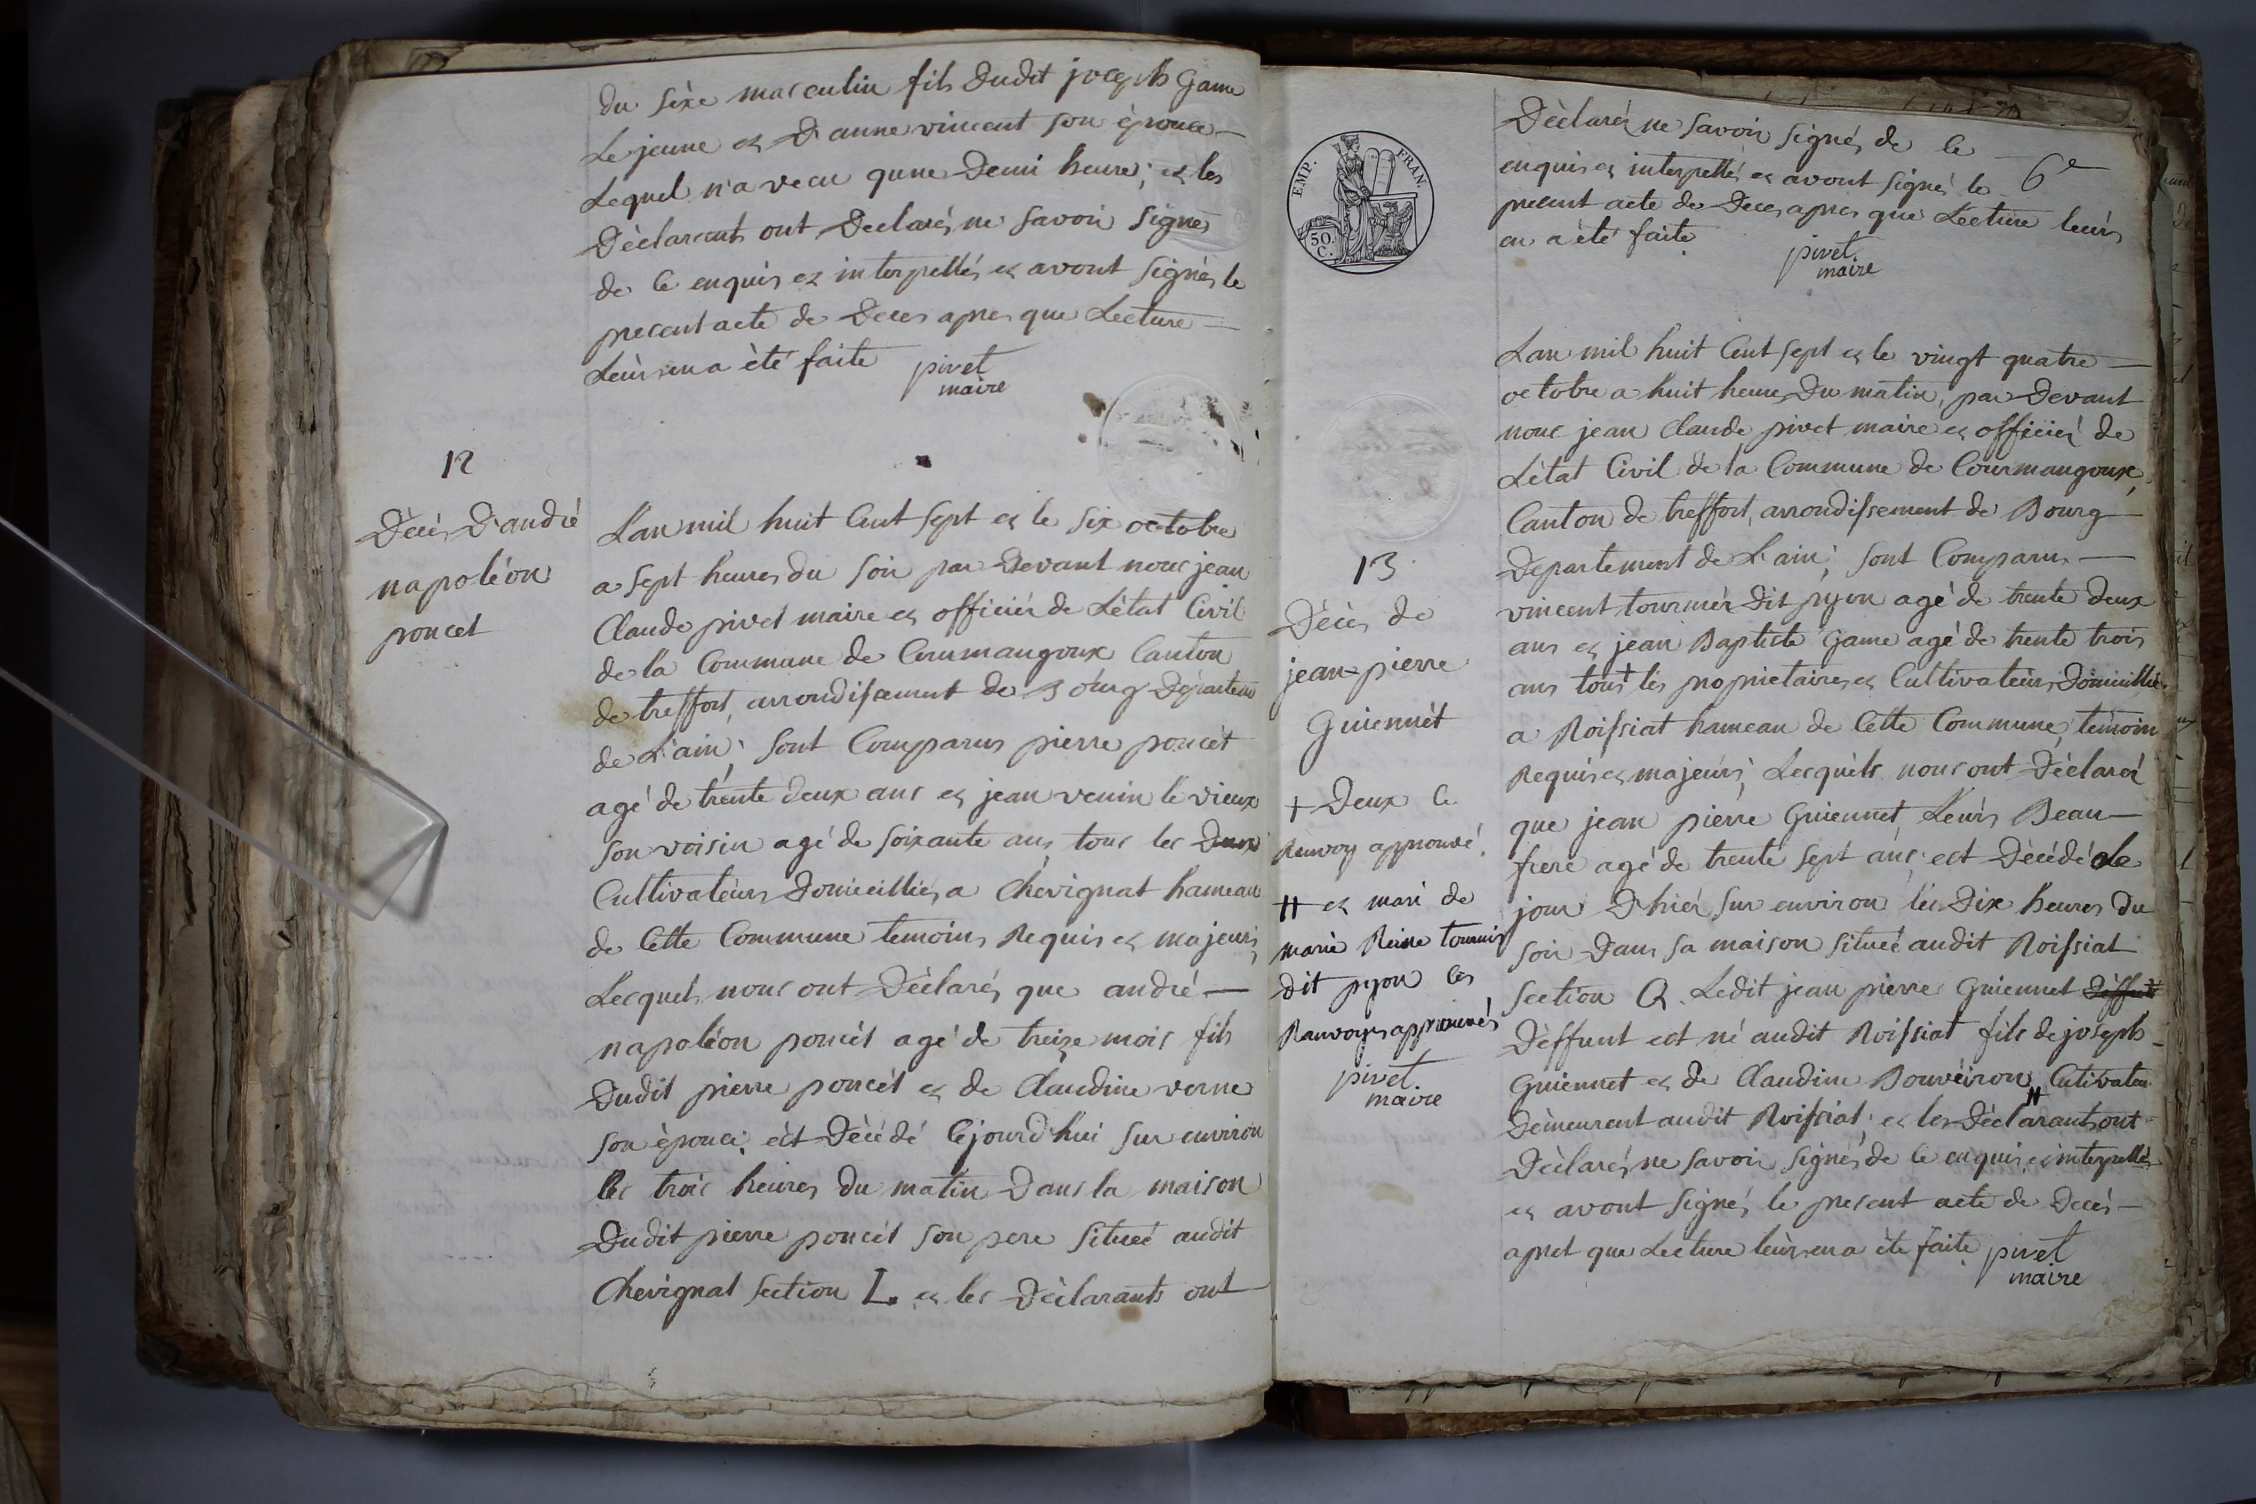 du sèxe masculin fils dudit joseph Game
Le jeune et D'anne vincent son èpouce
Lequel n'a vecu qune Demi heure; et les
Dèclarants ont Declarés ne savoir signés
de ce enquis et interpellés et avont signés le
precent acte de Deces apres que Lecture
Leurs en a èté faite pivet
maire
12
Dècès D'andré
napoléon
poncet
L'an mil huit Cent sept et le six octobre
a sept heures du soir par devant nous jean
Claude pivet maire et officier de L'ètat Civil
de la Commune de Courmangoux Canton
de treffort, arrondissement de Bourg Departem
de L'ain; sont Comparus pierre poncèt
agé de trente deux ans et jean venin le vieux
son voisin agé de soixante ans, tous les Deux
Cultivateurs Domicilliés a Chevignat hameau
de Cette Commune temoins Requis et majeurs
Lesquels nous ont Dèclarés que andré
napoléon poncèt agé de treize mois fils
Dudit pierre poncèt et de Claudine verne
son èpouce; èst Dècèdé Cejourd'hui sur environ
les trois heures du matin Dans la maison
Dudit pierre poncèt son pere Situeé audit
Chevignat section L. et les Dèclarants ont
EMP. FRAN.
50.
C.
Dèclarés ne savoir signés de ce
enquis et interpellés et avont signés le 6e
precent acte de Deces apres que Lecture leurs
en a èté faite
pivet
maire
13
Dècès de
jean-pierre
Guiennèt
+ Deux Ce
Renvoy approuvé
H et mari de
marie Reine tournier
dit pyon les
Ranvoyes approuvés
pivet
maire
L'an mil huit Cent sept et le vingt quatre
octobre a huit heures Du matin, par Devant
nous jean Claude pivet maire et officier de
L'ètat Civil de la Commune de Courmangoux,
Canton de treffort, arrondissement de Bourg
Departement de L'ain; sont Comparus
vincent tournier dit pyon agé de trente deux
ans et jean Baptiste Game agé de trente trois
ans tous + les propriétaires et Cultivateurs Domicilliés
a Roissiat hameau de Cette Commune, temoins
Requis et majeurs; Lesquèls nous ont Dèclaré
que jean pierre Guiennet, Leurs Beau
frere agé de trente sept ans; est Dècèdé le
jour D'hièr sur environ les Dix heures du
soir Dans sa maison situeé audit Roissiat
section Q. Ledit jean pierre Guiennet Dèffunt
Dèffunt est né audit Roissiat fils de joseph
Guiennet et de Claudine Bouvèiron H Cultivateur
Demeurent audit Roissiat; et les Dèclarants ont
Dèclarés ne savoir signés de ce enquis et interpellés
et avont signés le present acte de Decès
apres que Lecture leurs en a èté faite pivet
maire